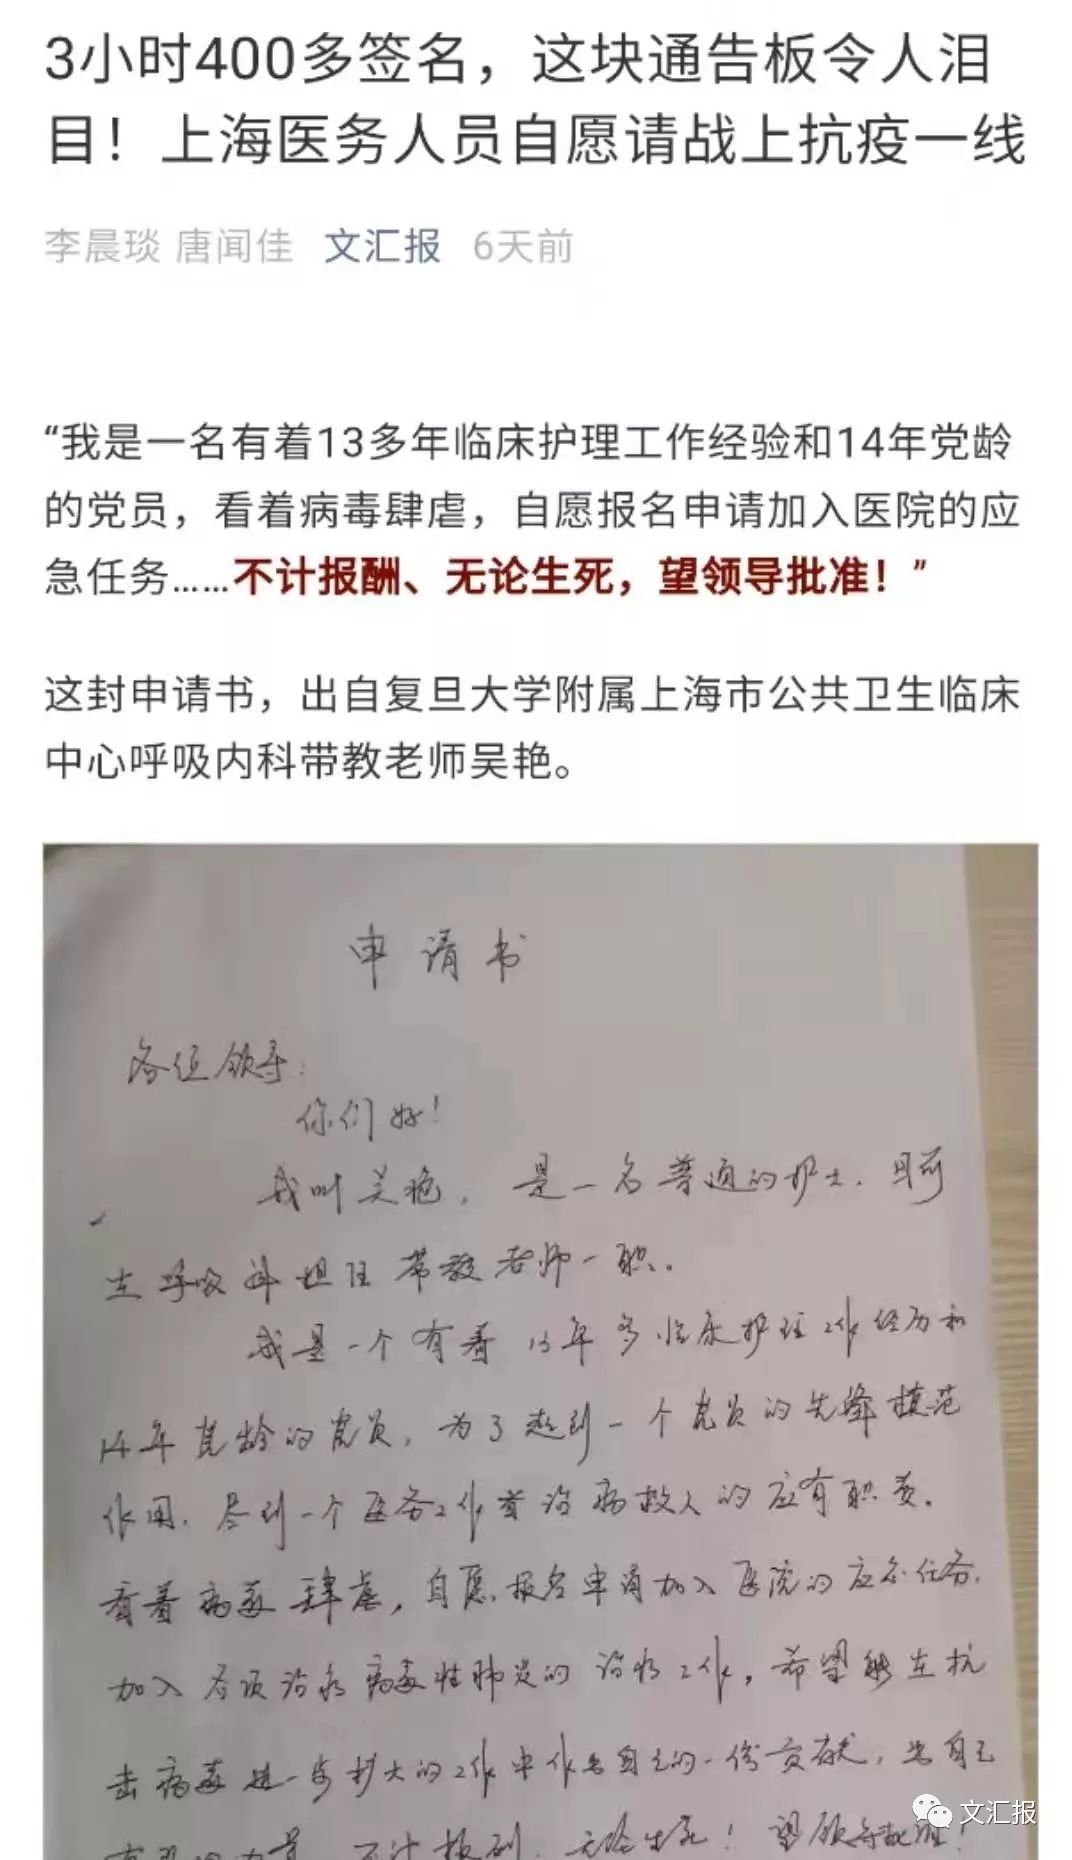 3小时400多签名，这块通告板令人泪
目！上海医务人员自愿请战上抗疫一线
李晨琰 唐闻佳 文汇报 6天前
“我是一名有着13多年临床护理工作经验和14年党龄
的党员，看着病毒肆虐，自愿报名申请加入医院的应
急任务……不计报酬、无论生死，望领导批准！”
这封申请书，出自复旦大学附属上海市公共卫生临床
中心呼吸内科带教老师吴艳。
申请书
各位领导：
你们好！
我叫吴艳，是一名普通的护士，目前
在呼吸科担任带教老师一职。
我是一个有着13年多临床护理工作经历和
14年党龄的党员，为了起到一个党员的先锋模范
作用，尽到一个医务工作者治病救人的应有职责。
看着病毒肆虐，自愿报名申请加入医院的应急任务，
加入各项治疗病毒性肺炎的治疗工作，希望能在抗
击病毒进一步扩大的工作中作出自己的一份贡献，出自己
不计报酬，无论生死！望领导批准！
文汇报